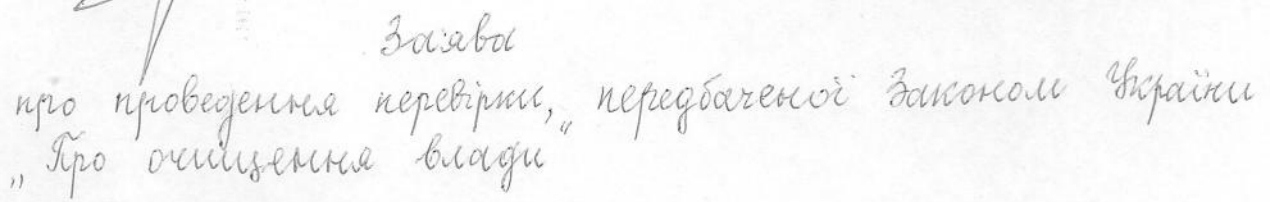 Заява
про проведення перевірки, передбаченої Законом України
„Про очищення влади“